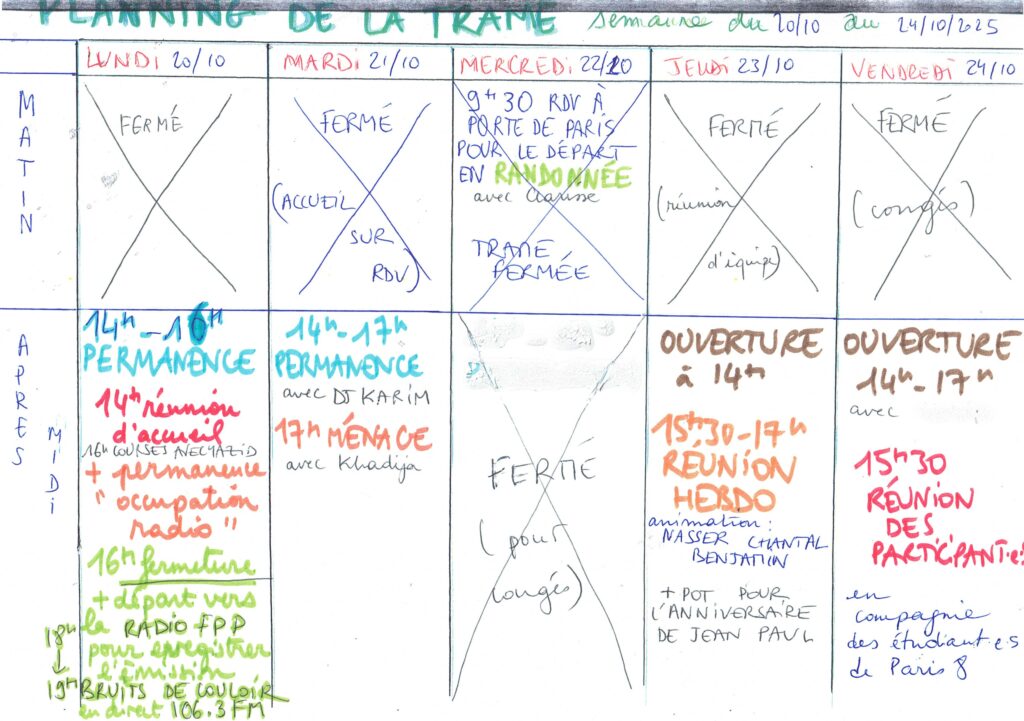 PLANNING DE LA TRAME semaine du 20/10 au 24/10/2025
LUNDI 20/10
MARDI 21/10
MERCREDI 22/10
JEUDI 23/10
VENDREDI 24/10
MATIN
FERMÉ
FERMÉ
(ACCUEIL
SUR
RDV)
9H30 RDV À
PORTE DE PARIS
POUR LE DÉPART
EN RANDONNÉE
avec Clarisse
TRAME
FERMÉE
FERMÉ
(réunion
d'équipe)
FERMÉ
(congés)
APRES
MIDI
14H-16H
PERMANENCE
14H réunion
d'accueil
16H COURSES AVEC YAZID
+ permanence
"occupation
radio"
16H fermeture
+ départ vers
la RADIO FPP
pour enregistrer
l'émission
18H
19H
BRUITS DE COULOIR
en direct 106.3 FM
14H-17H
PERMANENCE
avec DJ KARIM
17H MÉNAGE
avec Khadija
FERMÉ
(pour
congés)
OUVERTURE
à 14H
15H30-17H
RÉUNION
HEBDO
animation:
NASSER CHANTAL
BENJAMIN
+ POT POUR
L'ANNIVERSAIRE
DE JEAN PAUL
OUVERTURE
14H-17H
avec
15H30
RÉUNION
DES
PARTICIPANT·e·
en
compagnie
des étudiant·e·s
de Paris 8